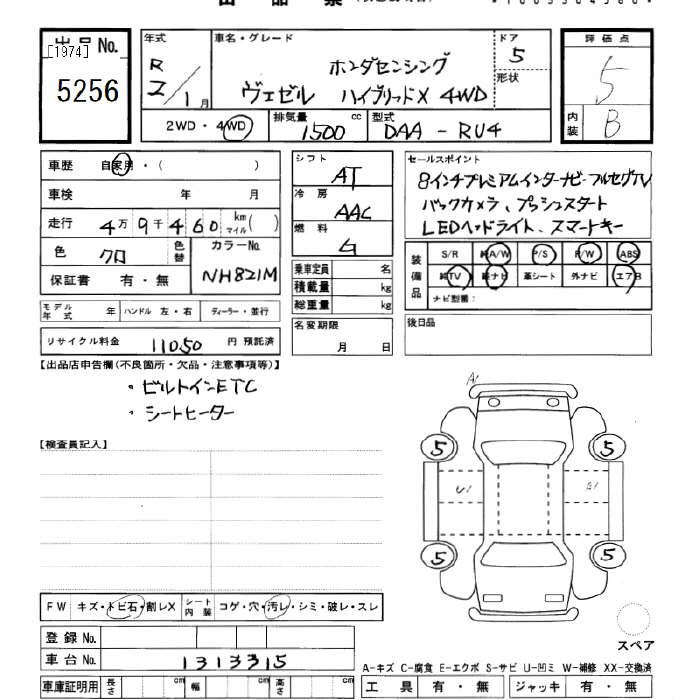 出品票
[1974]
出品 No.
5256
年式
R
2/1月
車名・グレード
ホンダセンシング
ヴェゼル ハイブリッドX 4WD
ドア
5
形状
評価点
5
内装
B
2WD・4WD
排気量
1500 cc
型式
DAA - RU4
車歴 自家用・( )
車検 年 月
走行 4万9千460 km マイル( )
色 クロ 色替
カラーNo.
NH821M
保証書 有・無
モデル年式 年 ハンドル 左・右 ディーラー・並行
リサイクル料金 11050 円 預託済
シフト
AT
冷房
AAC
燃料
G
乗車定員 名
積載量 kg
総重量 kg
名変期限
月 日
セールスポイント
8インチプレミアムインターナビ-フルセグTV
バックカメラ、プッシュスタート
LEDヘッドライト、スマートキー
装備品
S/R 純A/W P/S P/W ABS
純TV 純ナビ 革シート 外ナビ エアB
ナビ型番:
後日品
【出品店申告欄(不良箇所・欠品・注意事項等)】
・ビルトインETC
・シートヒーター
【検査員記入】
A1
5
5
U1
A1
5
5
スペア
FW キズ・トビ石・割レX
シート内装 コゲ・穴・汚レ・シミ・破レ・スレ
登録 No.
車台 No. 1313315
車庫証明用 長さ cm 幅 cm 高さ cm
A-キズ C-腐食 E-エクボ S-サビ U-凹ミ W-補修 XX-交換済
工具 有・無 ジャッキ 有・無